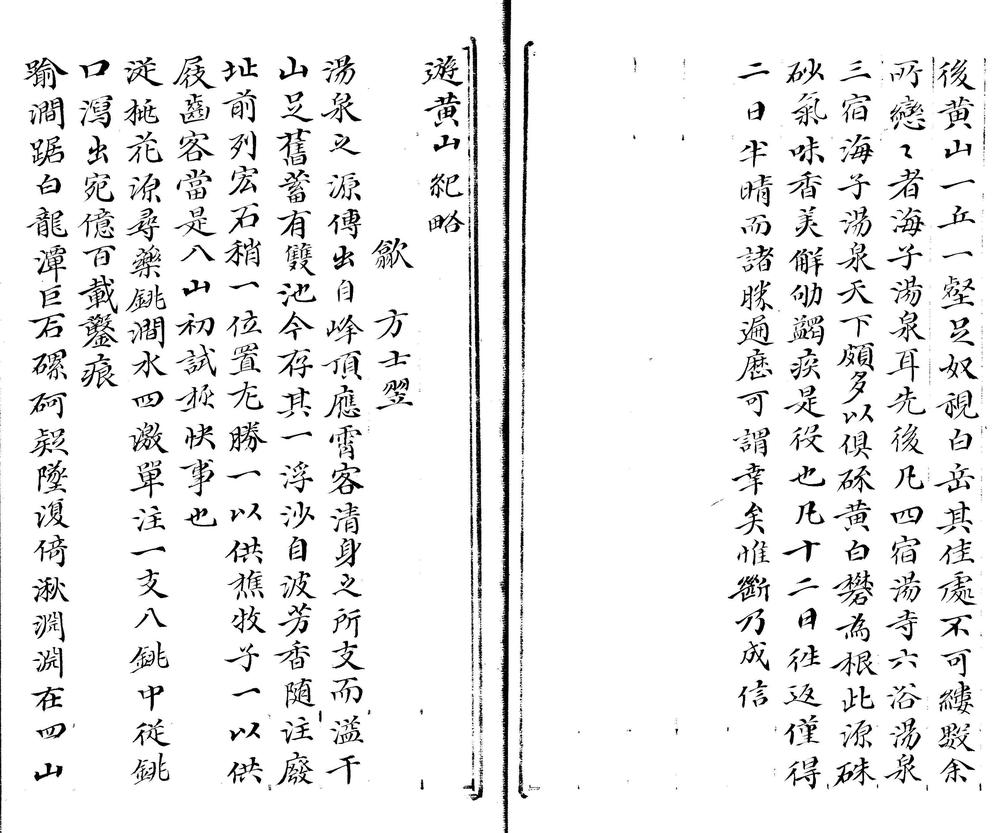 後黄山一丘一壑足奴視白岳其佳處不可縷數余
所戀〻者海子湯泉耳先後凡四宿湯寺六浴湯泉
三宿海子湯泉天下頗多以俱硫黄白礬為根此源硃
砂氣味香美解劬蠲疾是役也凡十二日徃返僅得
二日半晴而諸勝遍歷可謂幸矣惟斷乃成信
遊黄山紀略
歙方士翌
湯泉之源傳出自峰頂應霄客清身之所支而濫于
山足舊蓄有雙池今存其一浮沙自波芳香隨注廢
址前列宏石稍一位置尤勝一以供樵牧子一以供
屐齒客當是入山初試極快事也
從桃花源尋藥銚澗水四激單注一支入銚中從銚
口瀉出宛億百載鑿痕
踰澗踞白龍潭巨石磥砢疑墜復倚湫淵淵在四山